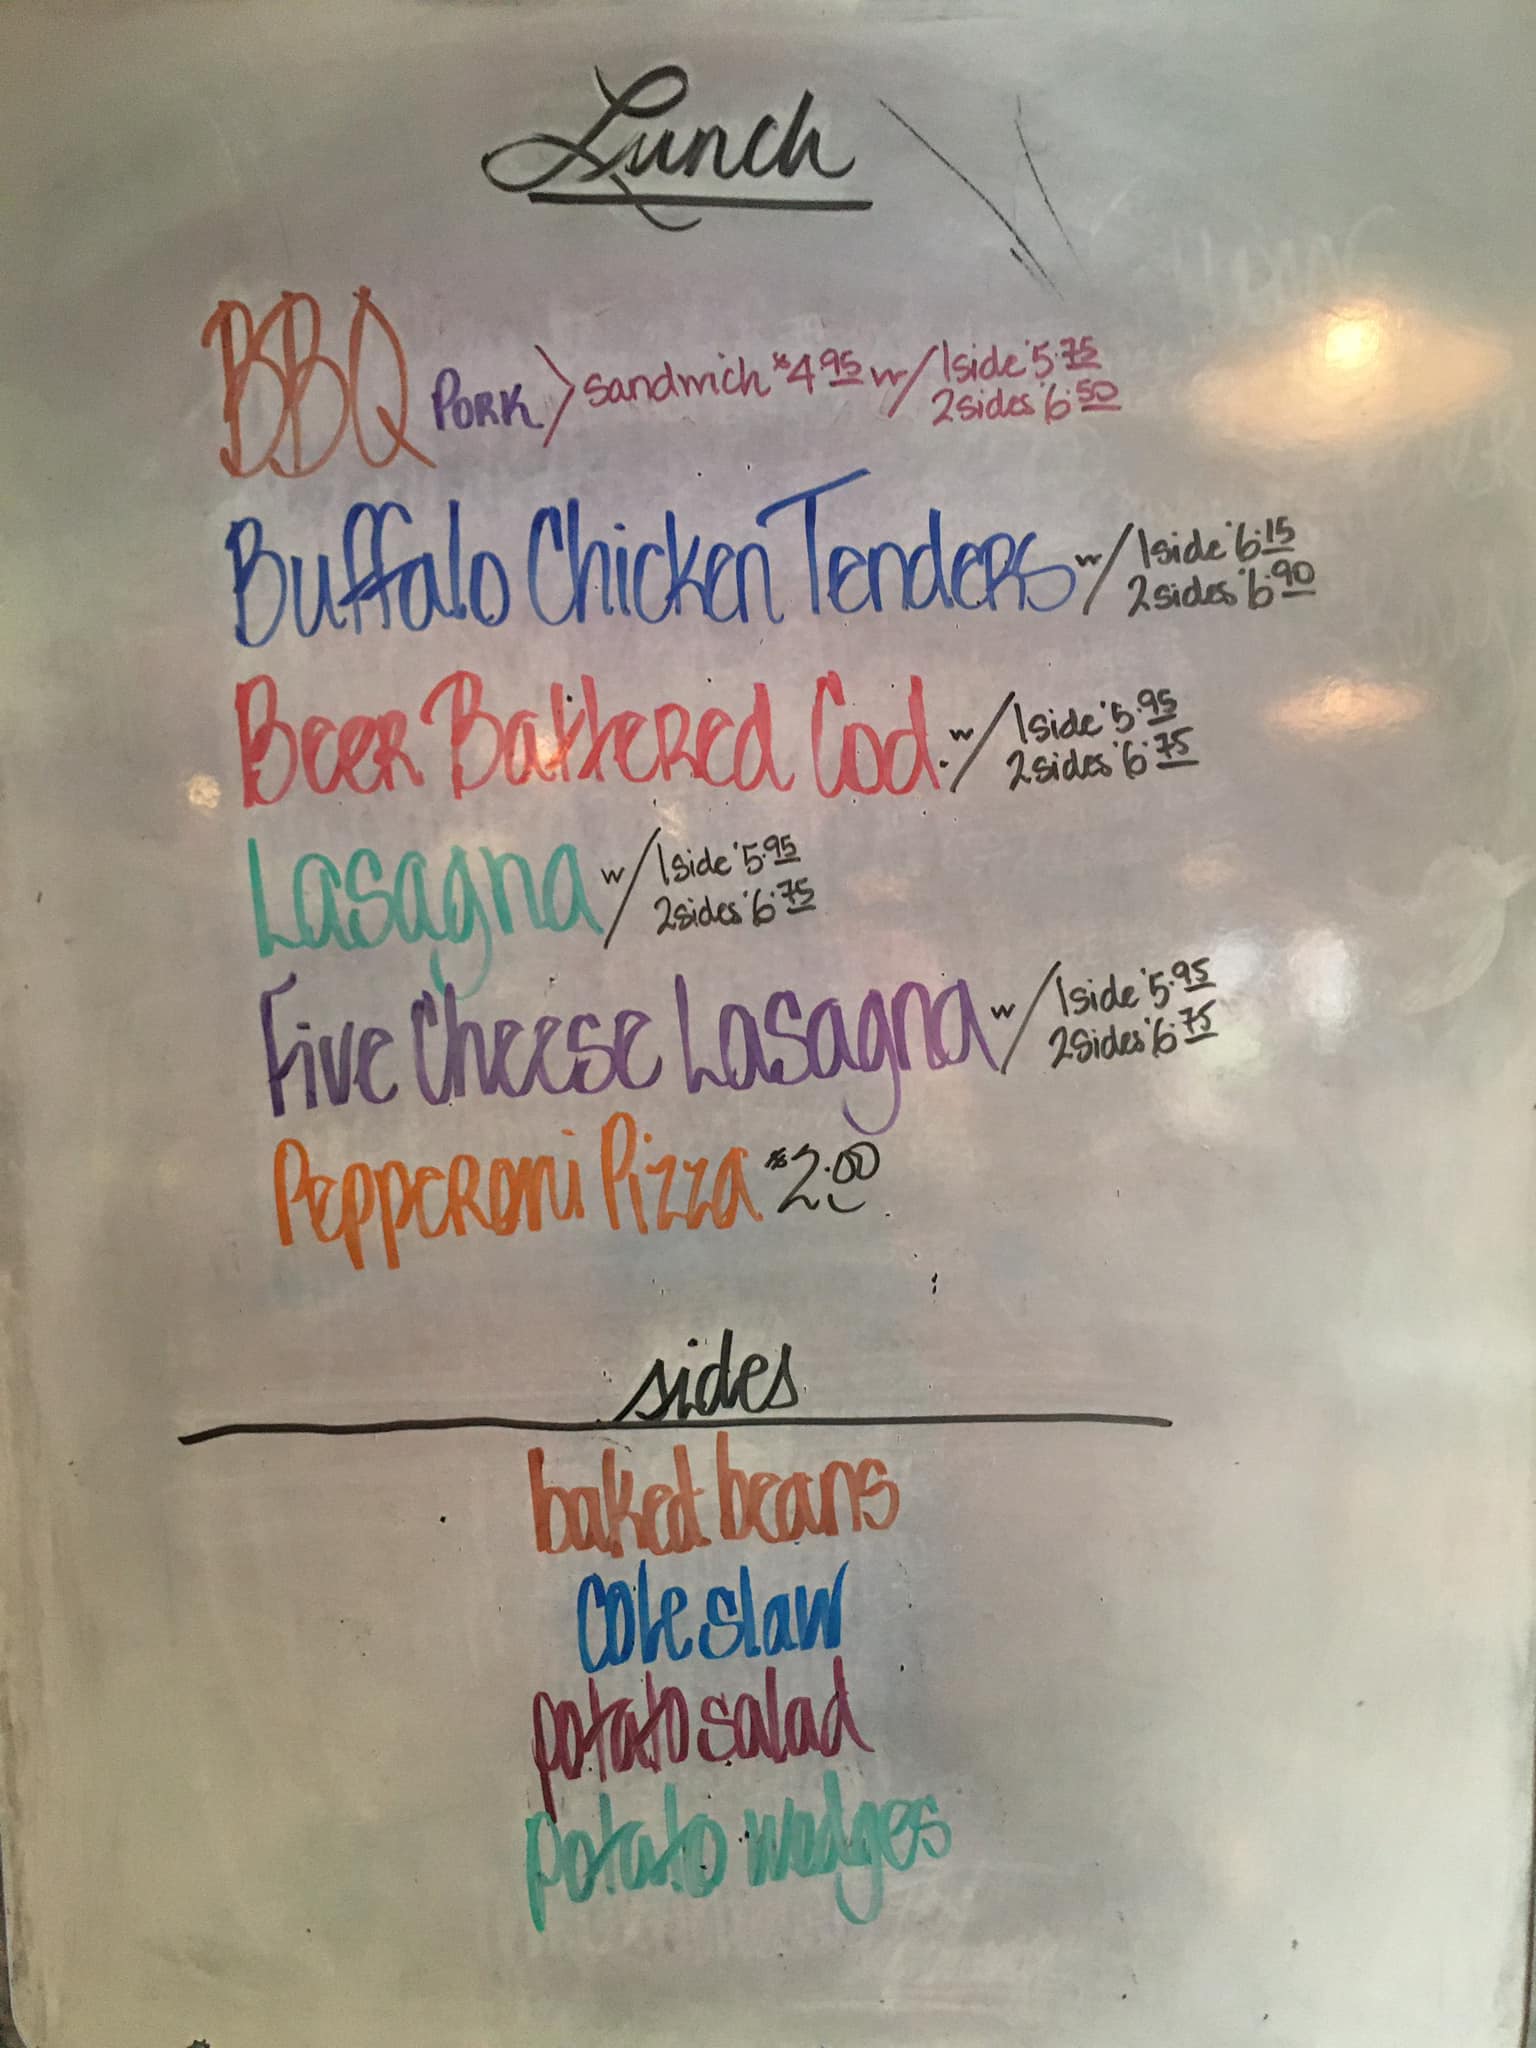 Lunch
BBQ PORK > Sandwich $4.95 w/ 1 side $5.75
2 sides $6.50
Buffalo Chicken Tenders w/ 1 side $6.15
2 sides $6.90
Beer Battered Cod. w/ 1 side $5.95
2 sides $6.75
Lasagna w/ 1 side $5.95
2 sides $6.75
Five Cheese Lasagna w/ 1 side $5.95
2 sides $6.75
Pepperoni Pizza $2.00
sides
baked beans
cole slaw
potato salad
potato wedges